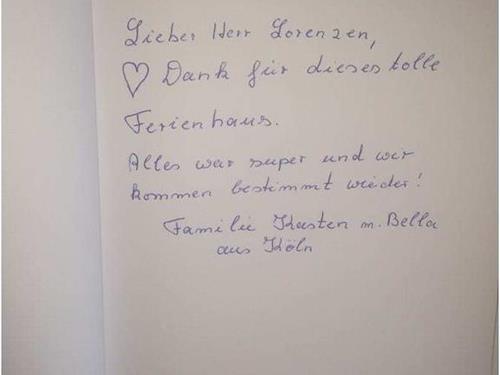 Lieber Herr Lorenzen,
♡ Dank für dieses tolle
Ferienhaus.
Alles war super und wir
kommen bestimmt wieder!
Familie Karsten m. Bella
aus Köln